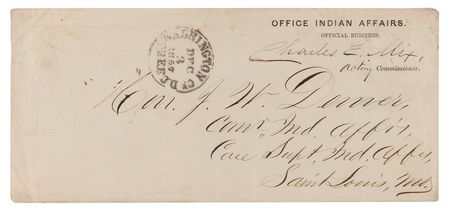 OFFICE INDIAN AFFAIRS.
OFFICIAL BUSINESS.
Charles E. Mix,
Acting Commissioner.
WASHINGTON CY
DEC
3
1857
FREE
Hon. J. W. Denver,
Comr. Ind. Affrs,
Care Supt. Ind. Affrs,
Saint Louis, Mo.